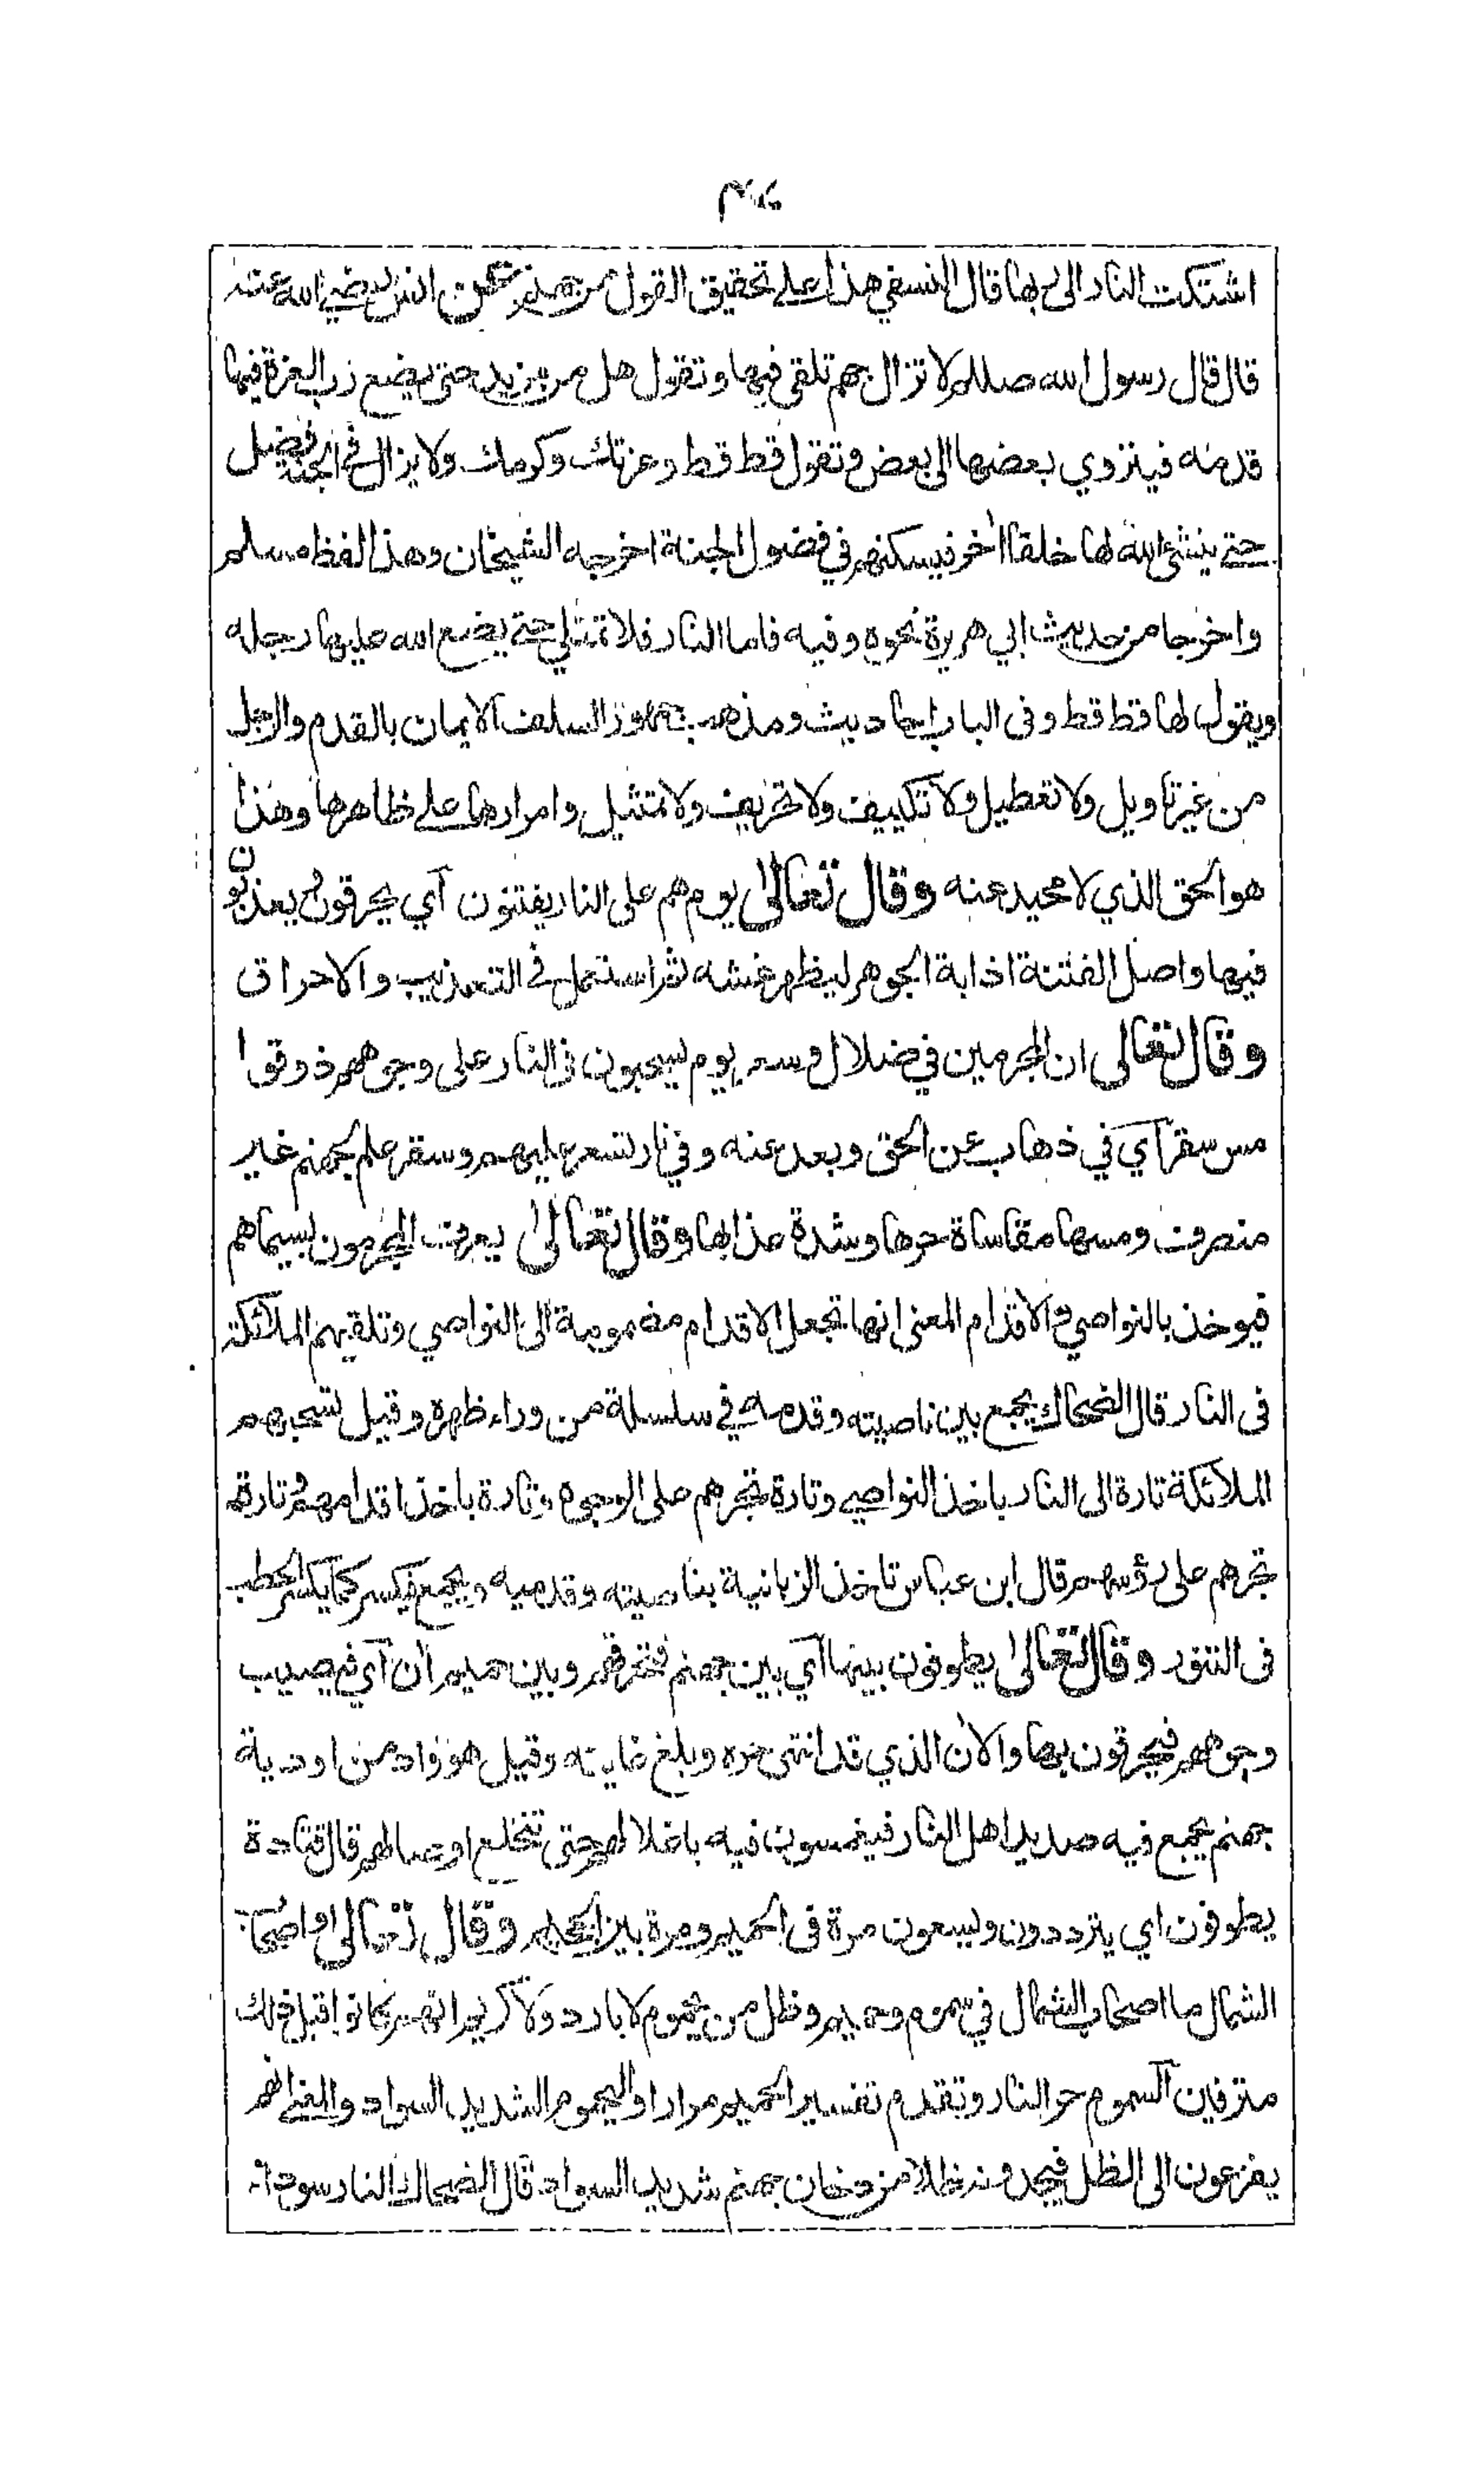 اشتكت النار الى ربها قال النسفي هذا على تحقيق القول من جهنم عن انس رضي الله عنه
قال قال رسول الله صللم لا تزال جهنم تلقى فيها وتقول هل من مزيد حتى يضع رب العزة فيها
قدمه فينزوي بعضها الى بعض وتقول قط قط وعزتك وكرمك ولا يزال في الجنة فضل
حتى ينشئ الله لها خلقا اخر فيسكنهم في فضول الجنة اخرجه الشيخان وهذا لفظ مسلم
واخرجا من حديث ابي هريرة نحوه وفيه فاما النار فلا تمتلي حتى يضع الله عليها رجله
ويقول لها قط قط وفى الباب احاديث ومذهب جمهور السلف الايمان بالقدم والرجل
من غير تاويل ولا تعطيل ولا تكييف ولا تحريف ولا تمثيل وامرارها على ظاهرها وهذا
هو الحق الذي لا محيد عنه وقال تعالى يوم هم على النار يفتنون آي يحرقون ويعذبون
فيها واصل الفتنة اذابة الجوهر ليظهر غشه ثم استعمل في التعذيب والاحراق
وقال تعالى ان المجرمين في ضلال وسعر يوم يسحبون فى النار على وجوههم ذوقوا
مس سقر آي في ذهاب عن الحق وبعد عنه وفي نار تسعر عليهم وسقر علم لجهنم غير
منصرف ومسها مقاساة حرها وشدة عذابها وقال تعالى يعرف المجرمون بسيماهم
فيوخذ بالنواصي والاقدام المعنى انها تجعل الاقدام مضمومة الى النواصي وتلقيهم الملائكة
فى النار قال الضحاك يجمع بين ناصيته وقدمه في سلسلة من وراء ظهره وقيل تسحبهم
الملائكة تارة الى النار باخذ النواصي وتارة تجرهم على الوجوه وتارة باخذ اقدامهم وتارة
تجرهم على رؤسهم قال ابن عباس تاخذ الزبانية بناصيته وقدميه ويجمع فيكسر كما يكسر الحطب
فى التنور وقال تعالى يطوفون بينها آي بين جهنم فتحرقهم وبين حميم أن آي فيصيب
وجوههم فيحرقون بها والأن الذي قد انتهى حره وبلغ غايته وقيل هو واد من اودية
جهنم يجمع فيه صديد اهل النار فيغمسون فيه باغلالهم حتى تنخلع اوصالهم قال قتادة
يطوفون اي يترددون ويسعون مرة فى الحميم ومرة بين الجحيم وقال تعالى واصحاب
الشمال ما اصحاب الشمال في سموم وحميم وظل من يحموم لا بارد ولا كريم انهم كانوا قبل ذلك
مترفين آلسموم حر النار وتقدم تفسير الحميم مرارا واليحموم الشديد السواد والمعنى انهم
يفزعون الى الظل فيجدونه ظلا من دخان جهنم شديد السواد قال الضحاك النار سوداء